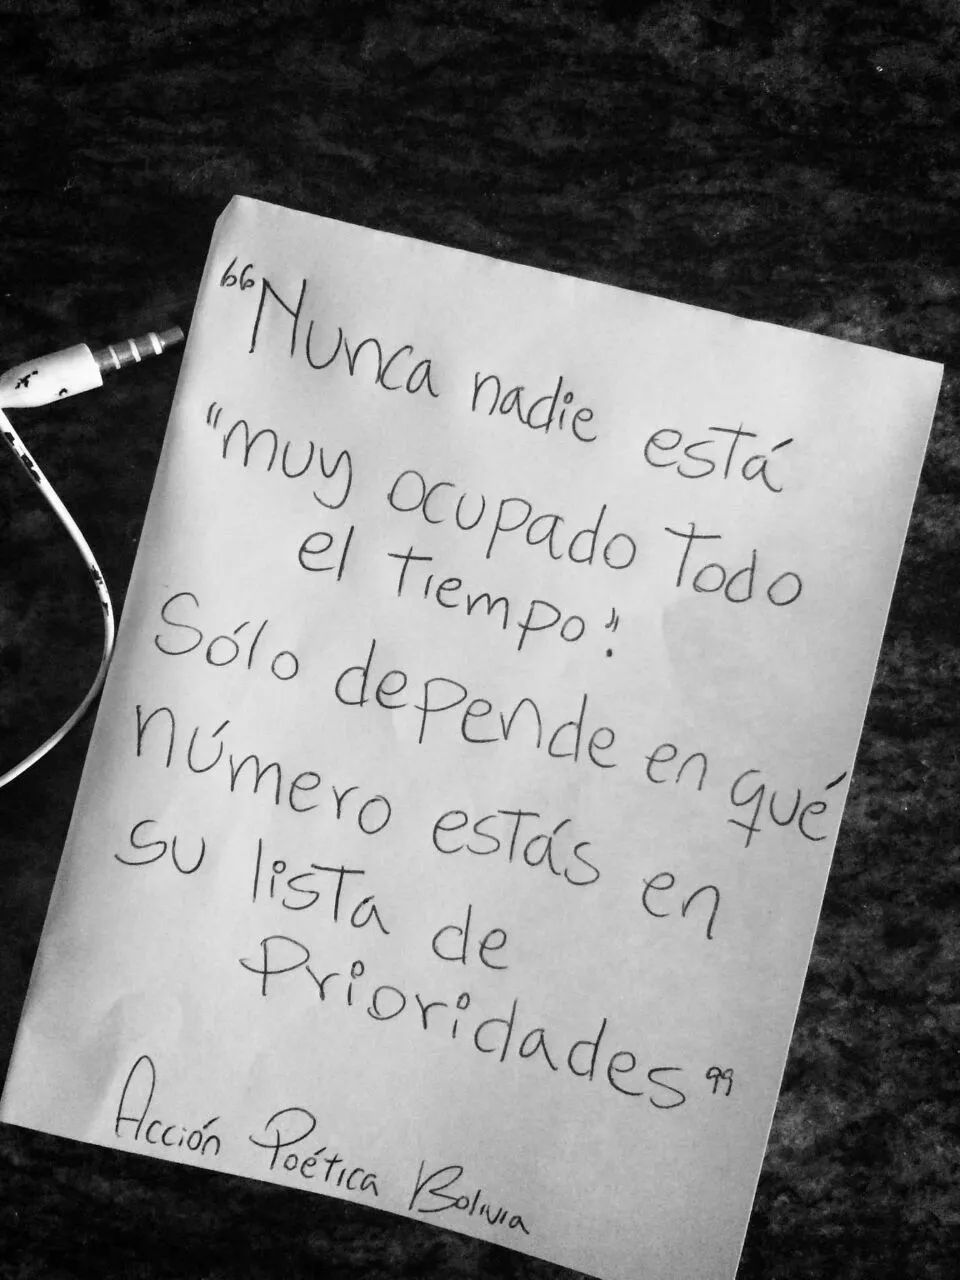 “Nunca nadie está
"muy ocupado Todo
el tiempo".
Sólo depende en qué
número estás en
su lista de
Prioridades”
Acción Poética Bolivia